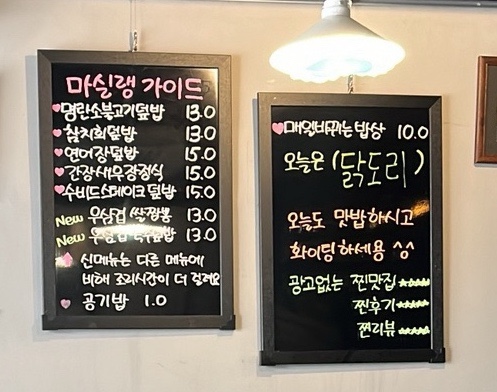 마실랭 가이드
명란소불고기덮밥 13.0
참치회덮밥 13.0
연어장덮밥 15.0
간장새우장정식 15.0
수비드스테이크덮밥 15.0
New 우삼겹 쌀짬뽕 13.0
New 우삼겹 13.0
신메뉴는 다른 메뉴에
비해 조리시간이 더 걸려요
공기밥 1.0
매일바뀌는밥상 10.0
오늘은 (닭도리)
오늘도 맛밥하시고
화이팅하세용 ^^
광고없는 찐맛집 ★★★★★
찐후기 ★★★★★
찐리뷰 ★★★★★